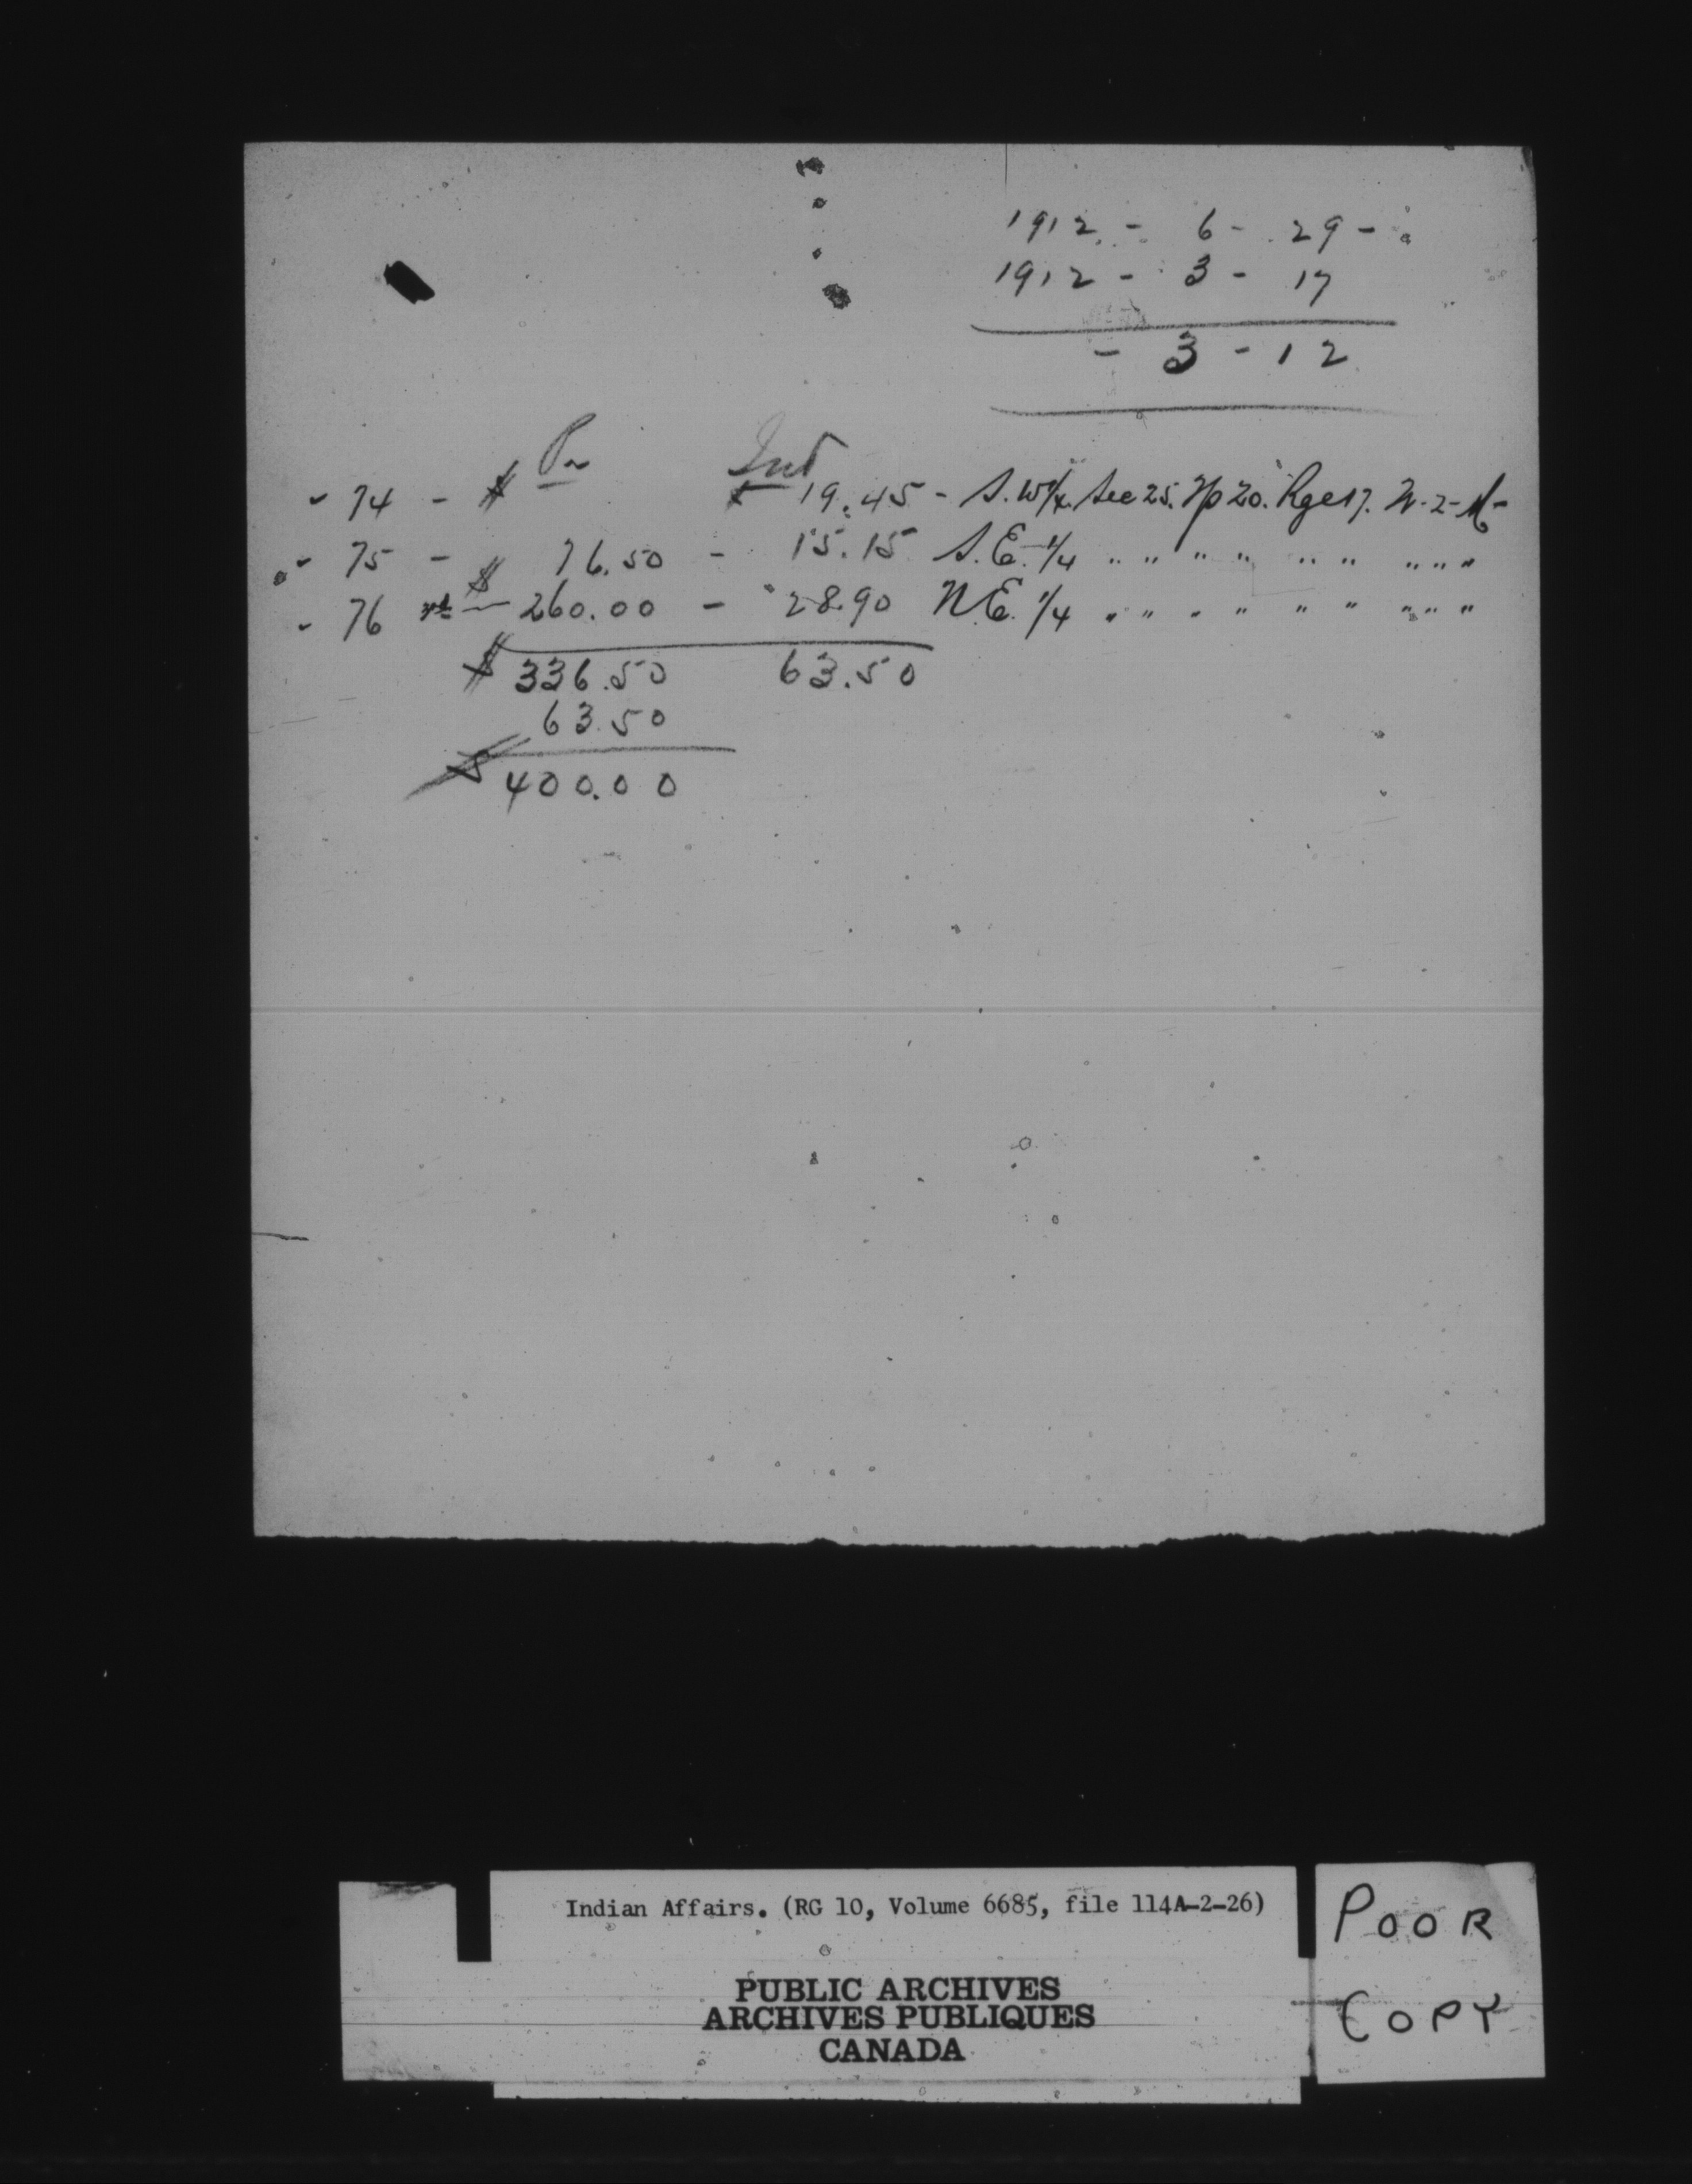 1912 - 6 - 29 -
1912 - 3 - 17
- 3 - 12
Pr Int
- 74 - $ $ 19.45 - S.W 1/4 Sec 25. Tp 20. Rge 17. W-2-M-
- 75 - $ 76.50 - 15.15 S.E. 1/4 " " " " " " " " "
- 76 - 260.00 - 28.90 N.E. 1/4 " " " " " " " " "
$ 336.50 63.50
63.50
$ 400.00
Indian Affairs. (RG 10, Volume 6685, file 114A-2-26)
PUBLIC ARCHIVES
ARCHIVES PUBLIQUES
CANADA
POOR
COPY